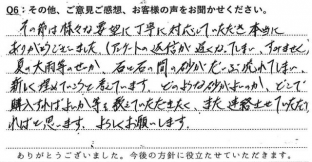 Q6：その他、ご意見ご感想、お客様の声をお聞かせください。
その節は様々な要望に丁寧に対応していただき本当に
ありがとうございました（アンケートの返信が遅くなってしまい、すみません）
夏の大雨等のせいか 石と石の間の砂がだいぶ流れてしまい
新しく埋めていこうと考えています どのような砂がよいのか、どこで
購入すればよいか等を教えていただきたく、また連絡させていただけ
ればと思います。よろしくお願いします。
ありがとうございました。今後の方針に役立たせていただきます。